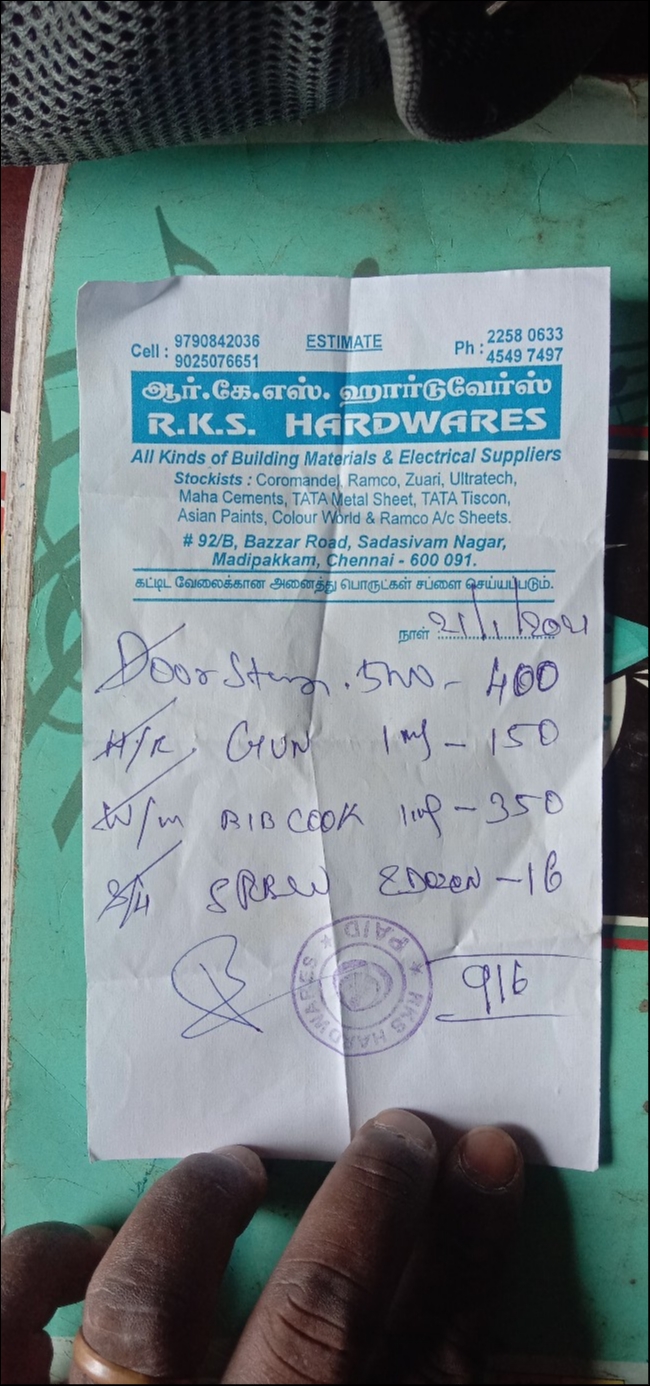 Cell : 9790842036
9025076651
ESTIMATE
Ph : 2258 0633
4549 7497
ஆர்.கே.எஸ். ஹார்டுவேர்ஸ்
R.K.S. HARDWARES
All Kinds of Building Materials & Electrical Suppliers
Stockists : Coromandel, Ramco, Zuari, Ultratech,
Maha Cements, TATA Metal Sheet, TATA Tiscon,
Asian Paints, Colour World & Ramco A/c Sheets.
# 92/B, Bazzar Road, Sadasivam Nagar,
Madipakkam, Chennai - 600 091.
கட்டிட வேலைக்கான அனைத்து பொருட்கள் சப்ளை செய்யப்படும்.
நாள் : 21/1/2021
Door - 400
H/R. GUN - 150
W/m BIB COOK - 350
DOZEN - 16
RKS HARDWARES ★ PAID ★
916